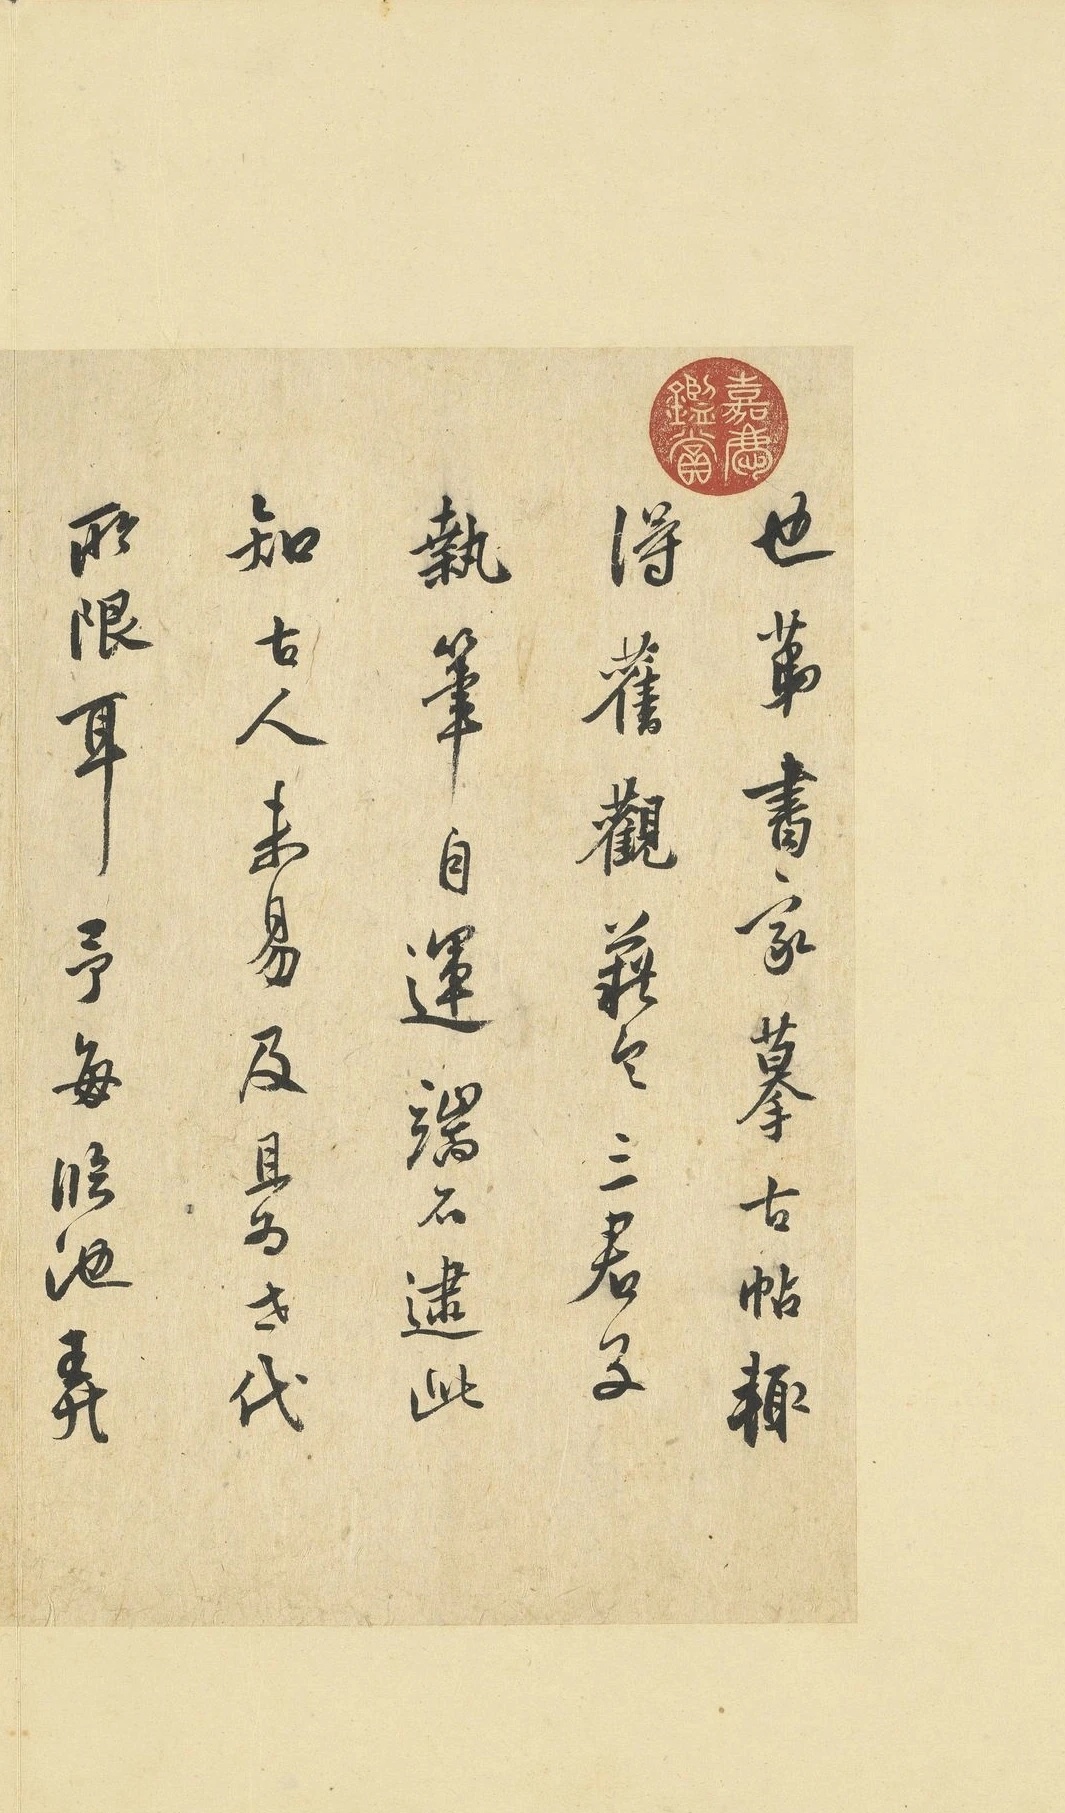 嘉慶
鑑賞
也苐書家摹古帖輙
得舊觀藉令三君子
執筆自運端不逮此
知古人未易及且為世代
所限耳予每臨池弄